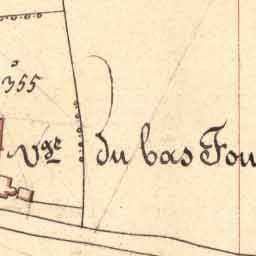 355
Vge du bas Fou